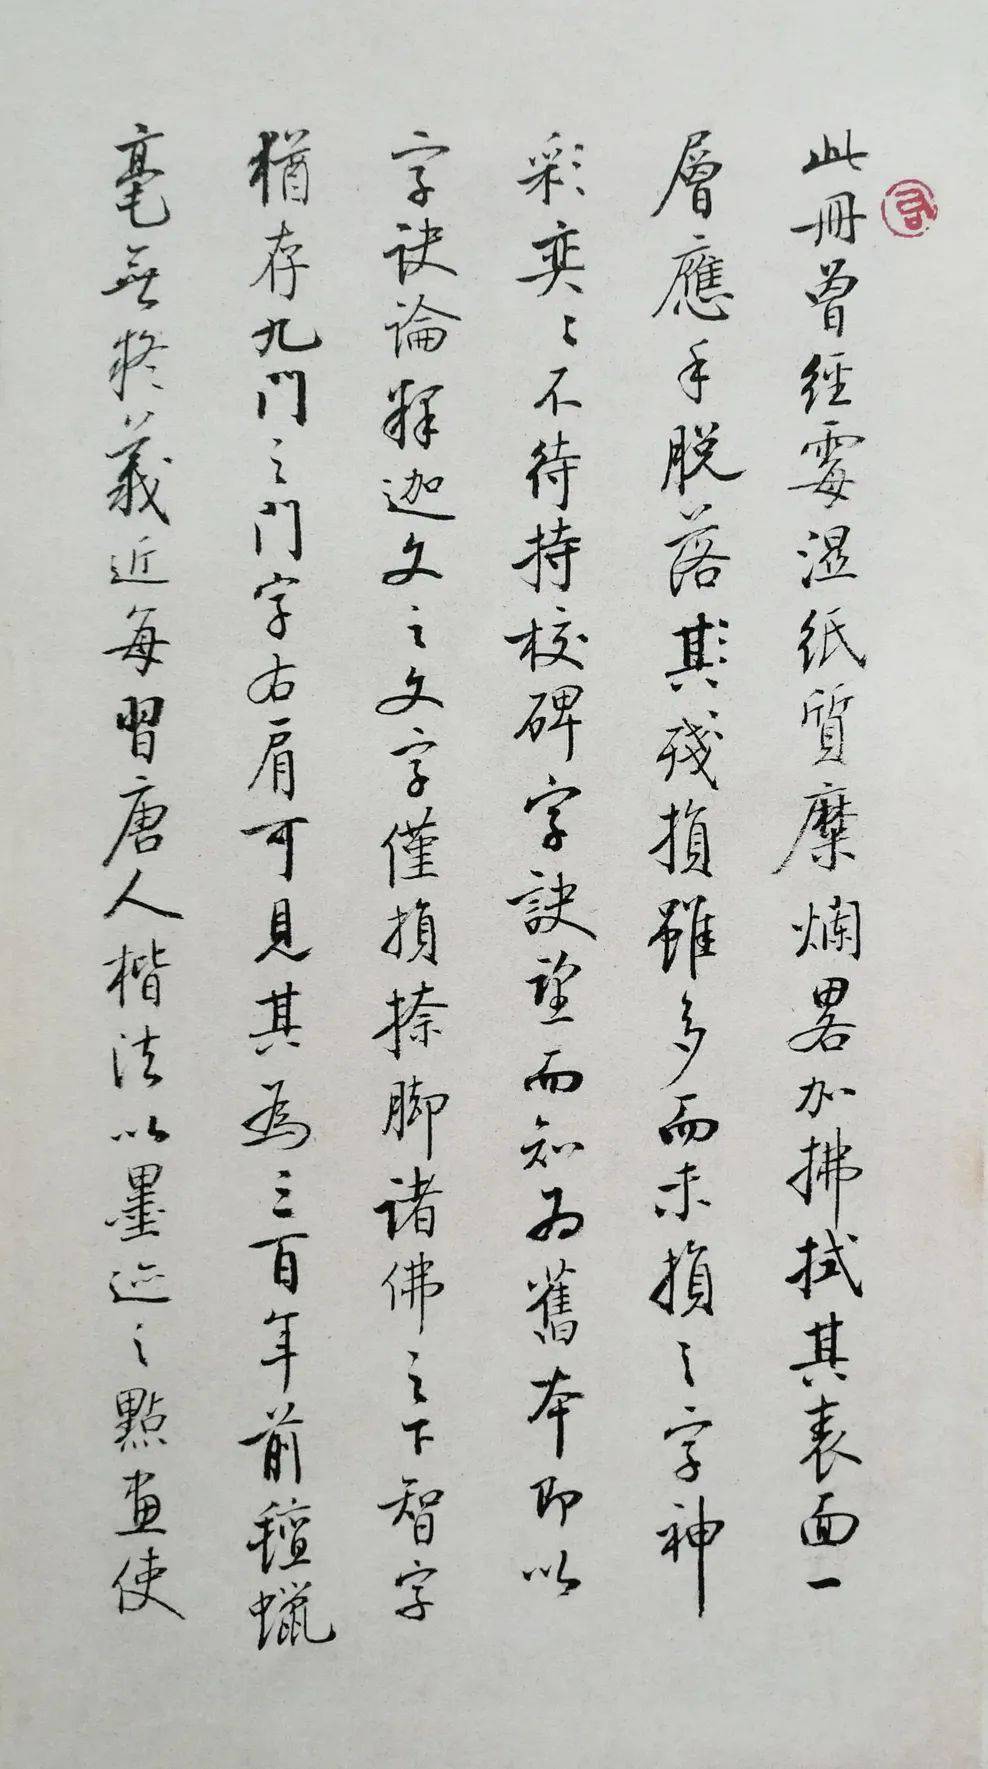 此冊曾經霉濕紙質糜爛畧加拂拭其表面一
層應手脫落其殘損雖多而未損之字神
彩奕〻不待持校碑字訣望而知為舊本即以
字訣論釋迦文之文字僅損捺腳諸佛之下智字
猶存九門之門字右肩可見其為三百年前氊蠟
毫無疑義近每習唐人楷法以墨迹之點畫使